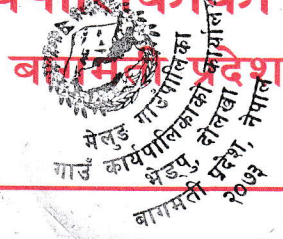 बागमती प्रदेश
मेलुङ गाउँपालिका
गाउँ कार्यपालिकाको कार्यालय
भेडपु, दोलखा
बागमती प्रदेश, नेपाल
२०७३